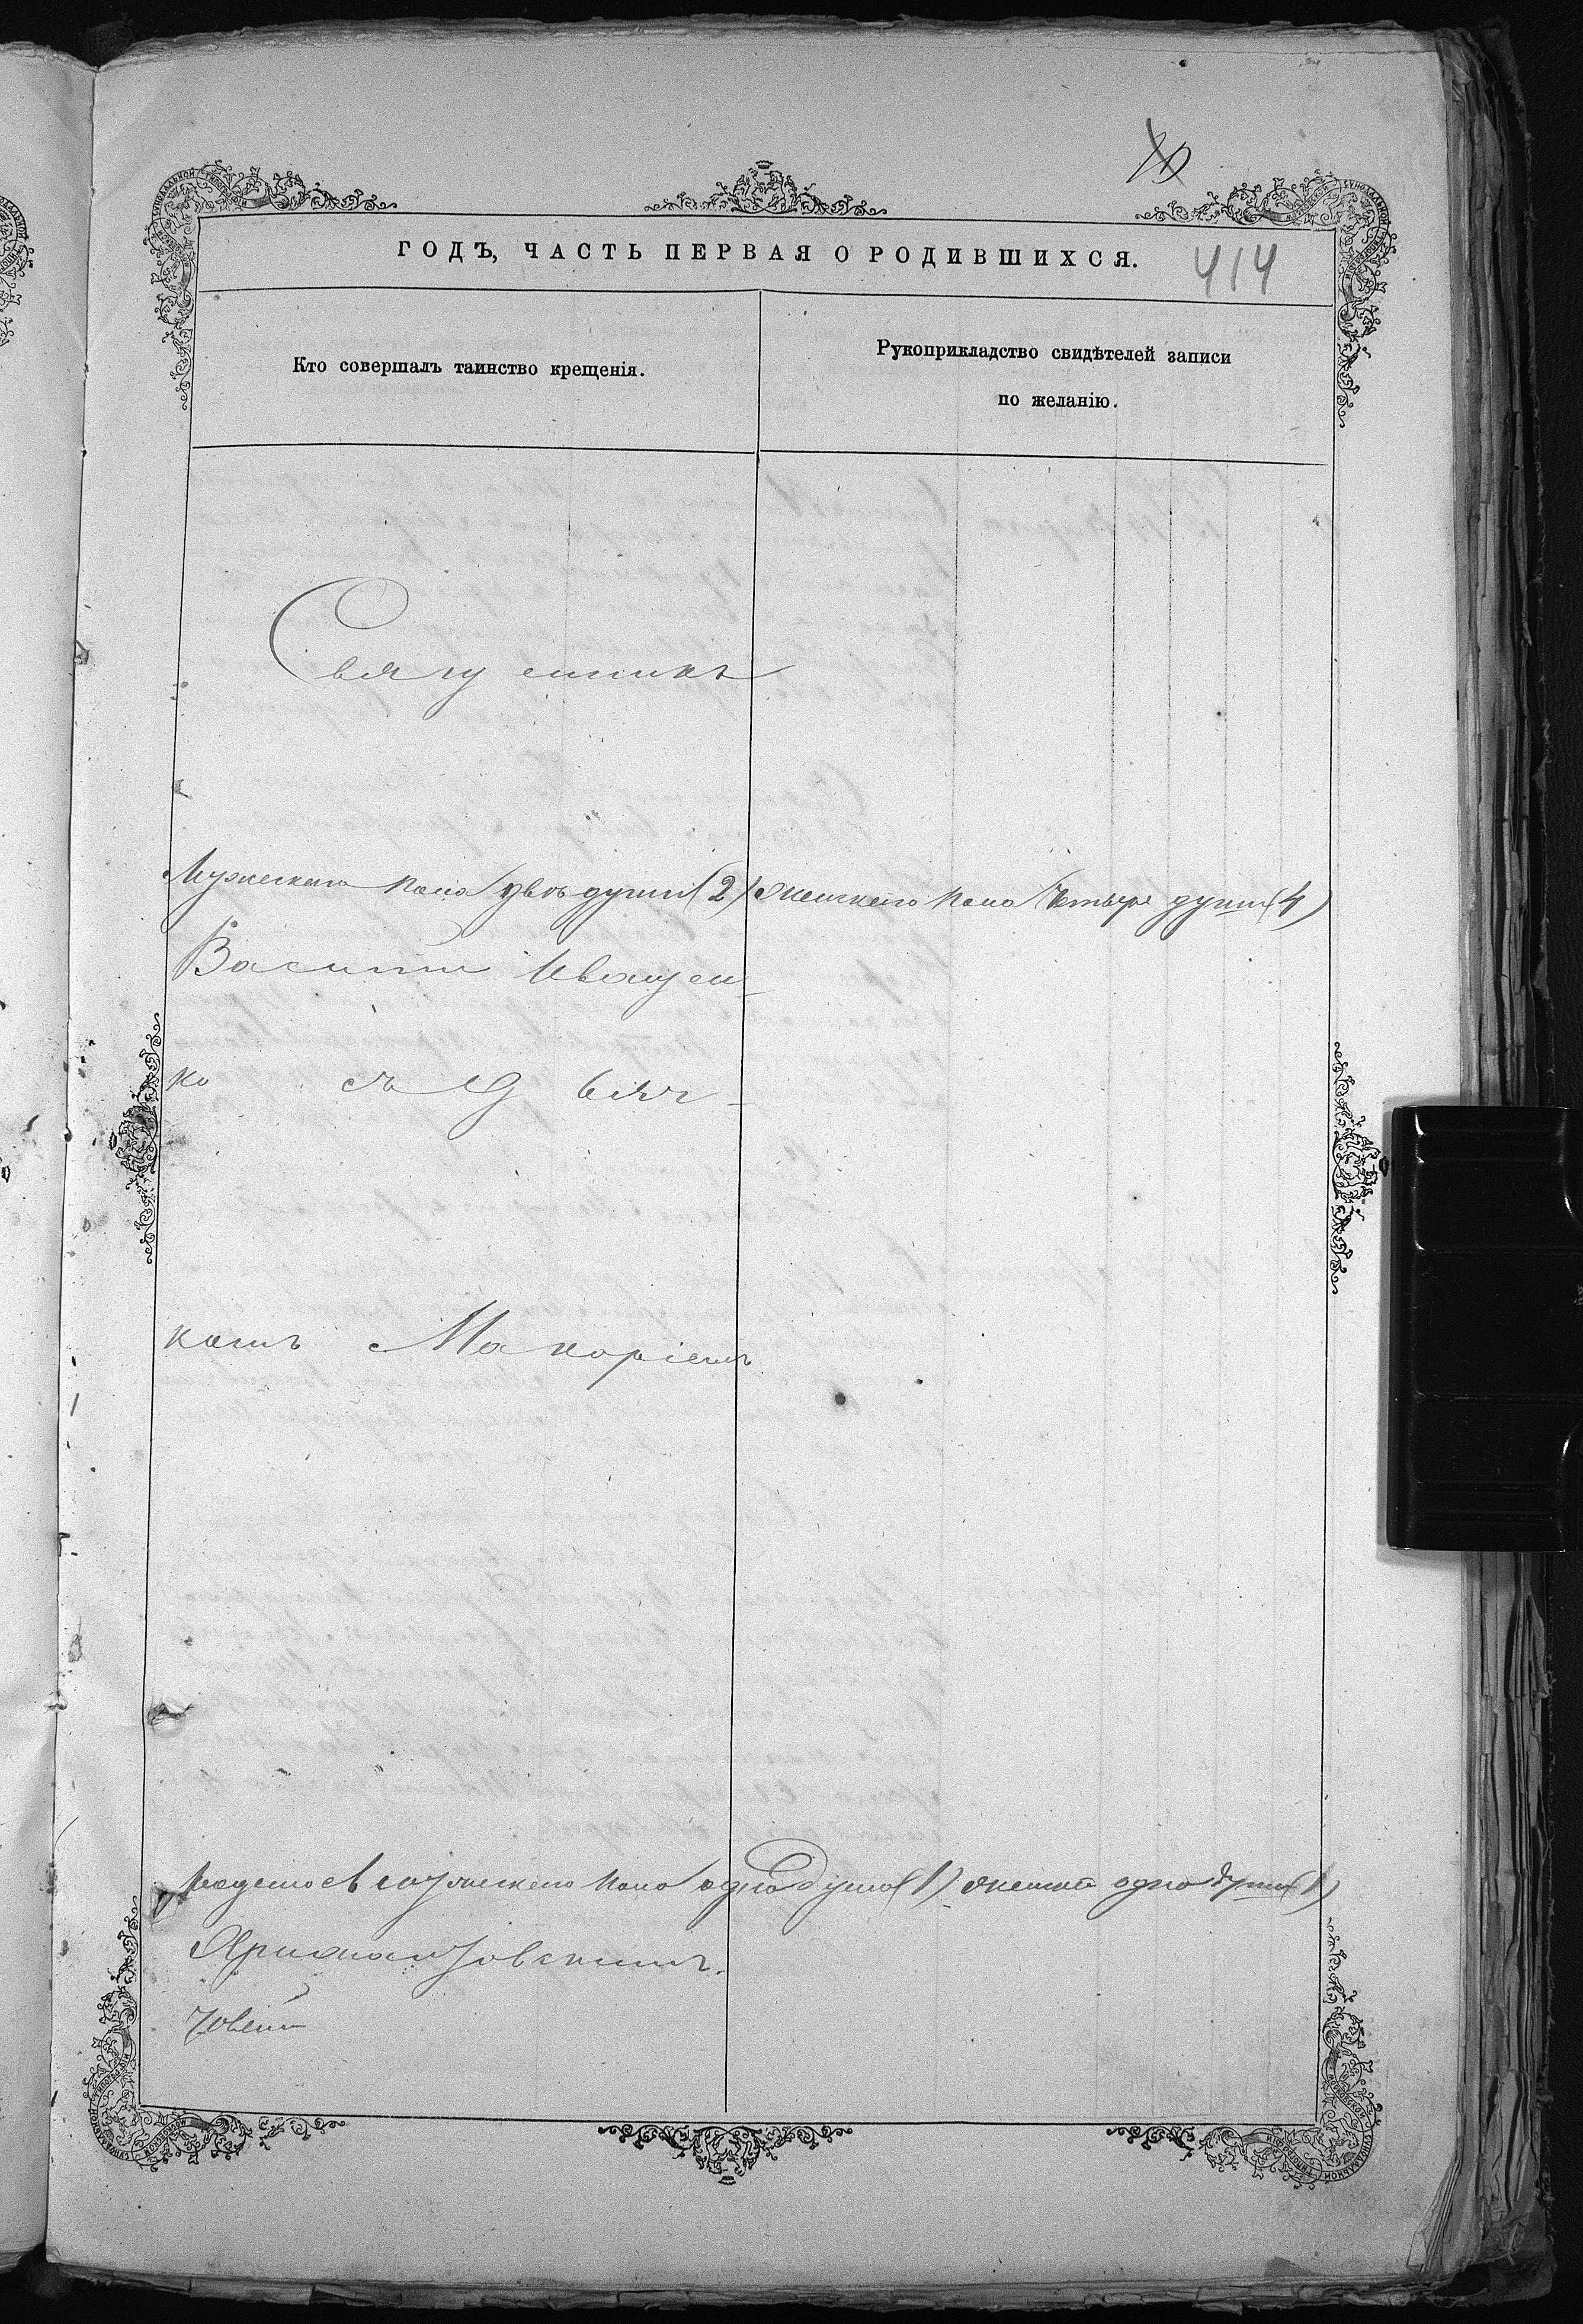 ГОДЪ, ЧАСТЬ ПЕРВАЯ О РОДИВШИХСЯ.
414
Кто совершалъ таинство крещенія.
Рукоприкладство свидѣтелей записи
по желанію.
Священникъ
Мужескаго пола двѣ души (2) женскаго пола четыре души (4)
Василій Иващен-
ко съ Дьяч-
комъ Макаріемъ
мужескаго пола одна душа (1) женска одна душа (1)